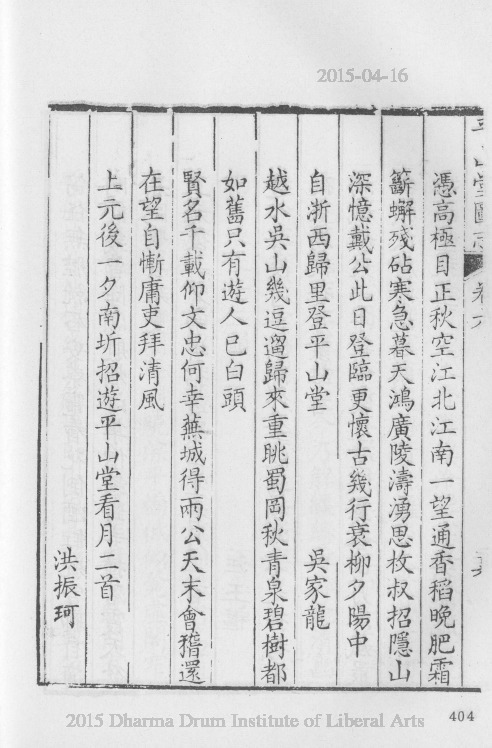 2015-04-16
平山堂圖志 卷六
憑高極目正秋空江北江南一望通香稻晚肥霜
籪蠏殘砧寒急暮天鴻廣陵濤湧思枚叔招隱山
深憶戴公此日登臨更懷古幾行衰柳夕陽中
自浙西歸里登平山堂 吳家龍
越水吳山幾逗遛歸來重眺蜀岡秋青泉碧樹都
如舊只有遊人已白頭
賢名千載仰文忠何幸蕪城得兩公天末會稽還
在望自慚庸吏拜清風
上元後一夕南圻招遊平山堂看月二首
洪振珂
404
2015 Dharma Drum Institute of Liberal Arts